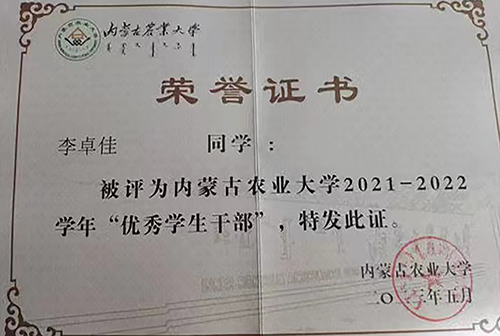 内蒙古农业大学
荣誉证书
李卓佳 同学：
被评为内蒙古农业大学2021-2022
学年“优秀学生干部”，特发此证。
内蒙古农业大学
二〇二三年五月